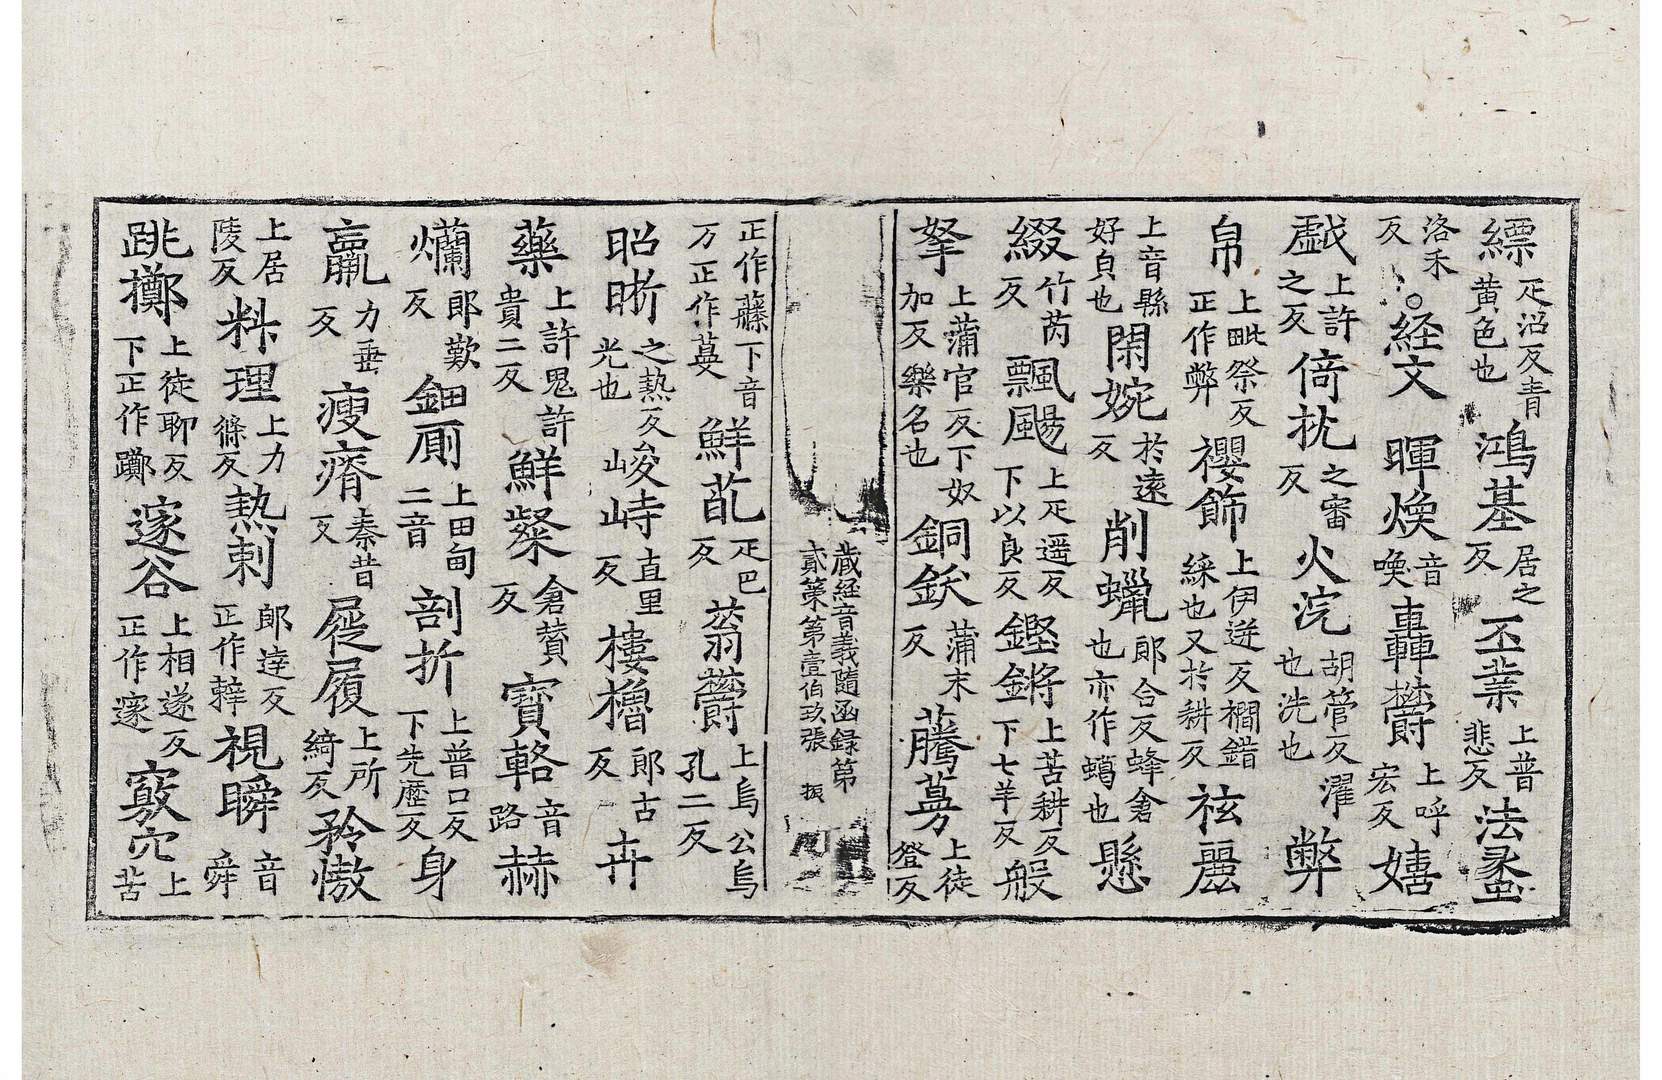 縹疋沼反青黄色也鴻基居之反丕業上普悲反法蠡
洛禾反○経文暉煥音喚轟欝上呼宏反嬉
戯上許之反倚枕之審反火浣胡管反濯也洗也弊
帛上毗祭反正作弊襻飾上伊迸反襉錯綵也又於耕反袨麗
上音縣好皃也閑婉於遠反削蠟郎合反蜂倉也亦作蝎也懸
綴竹芮反飄颺上疋遥反下以良反鏗鏘上苦耕反下七羊反般
拏上蒲官反下奴加反樂名也銅鈸蒲末反䕨蔓上徒登反
蔵経音義随函録第貳第第壹伯玖張 振
正作藤下音万正作蔓鮮葩疋巴反蓊欝上烏公烏孔二反
昭晣之熱反光也峻峙直里反樓櫓郎古反卉
藥上許鬼許貴二反鮮粲倉賛反寳輅音路赫
爛郎歎反鈿厠上田甸二音剖析上普口反下先歴反身
羸力垂反瘦瘠秦昔反屣履上所綺反矜慠
上居陵反料理上力條反𤍠剌郎逹反正作辢視瞬音舜
跳擲上徒聊反下正作躑邃谷上相遂反正作邃竅穴上苦